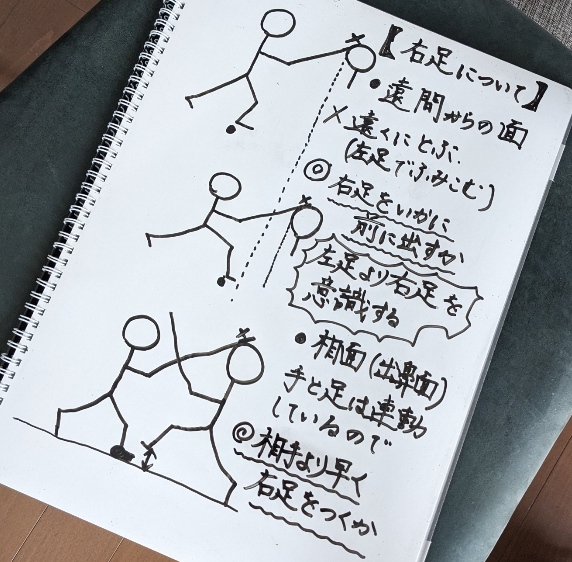 【右足について】
• 遠間からの面
× 遠くにとぶ.
(左足でふみこむ)
◎ 右足をいかに
前に出すか
左足より右足を
意識する
• 相面(出鼻面)
手と足は連動
しているので
◎ 相手より早く
右足をつくか